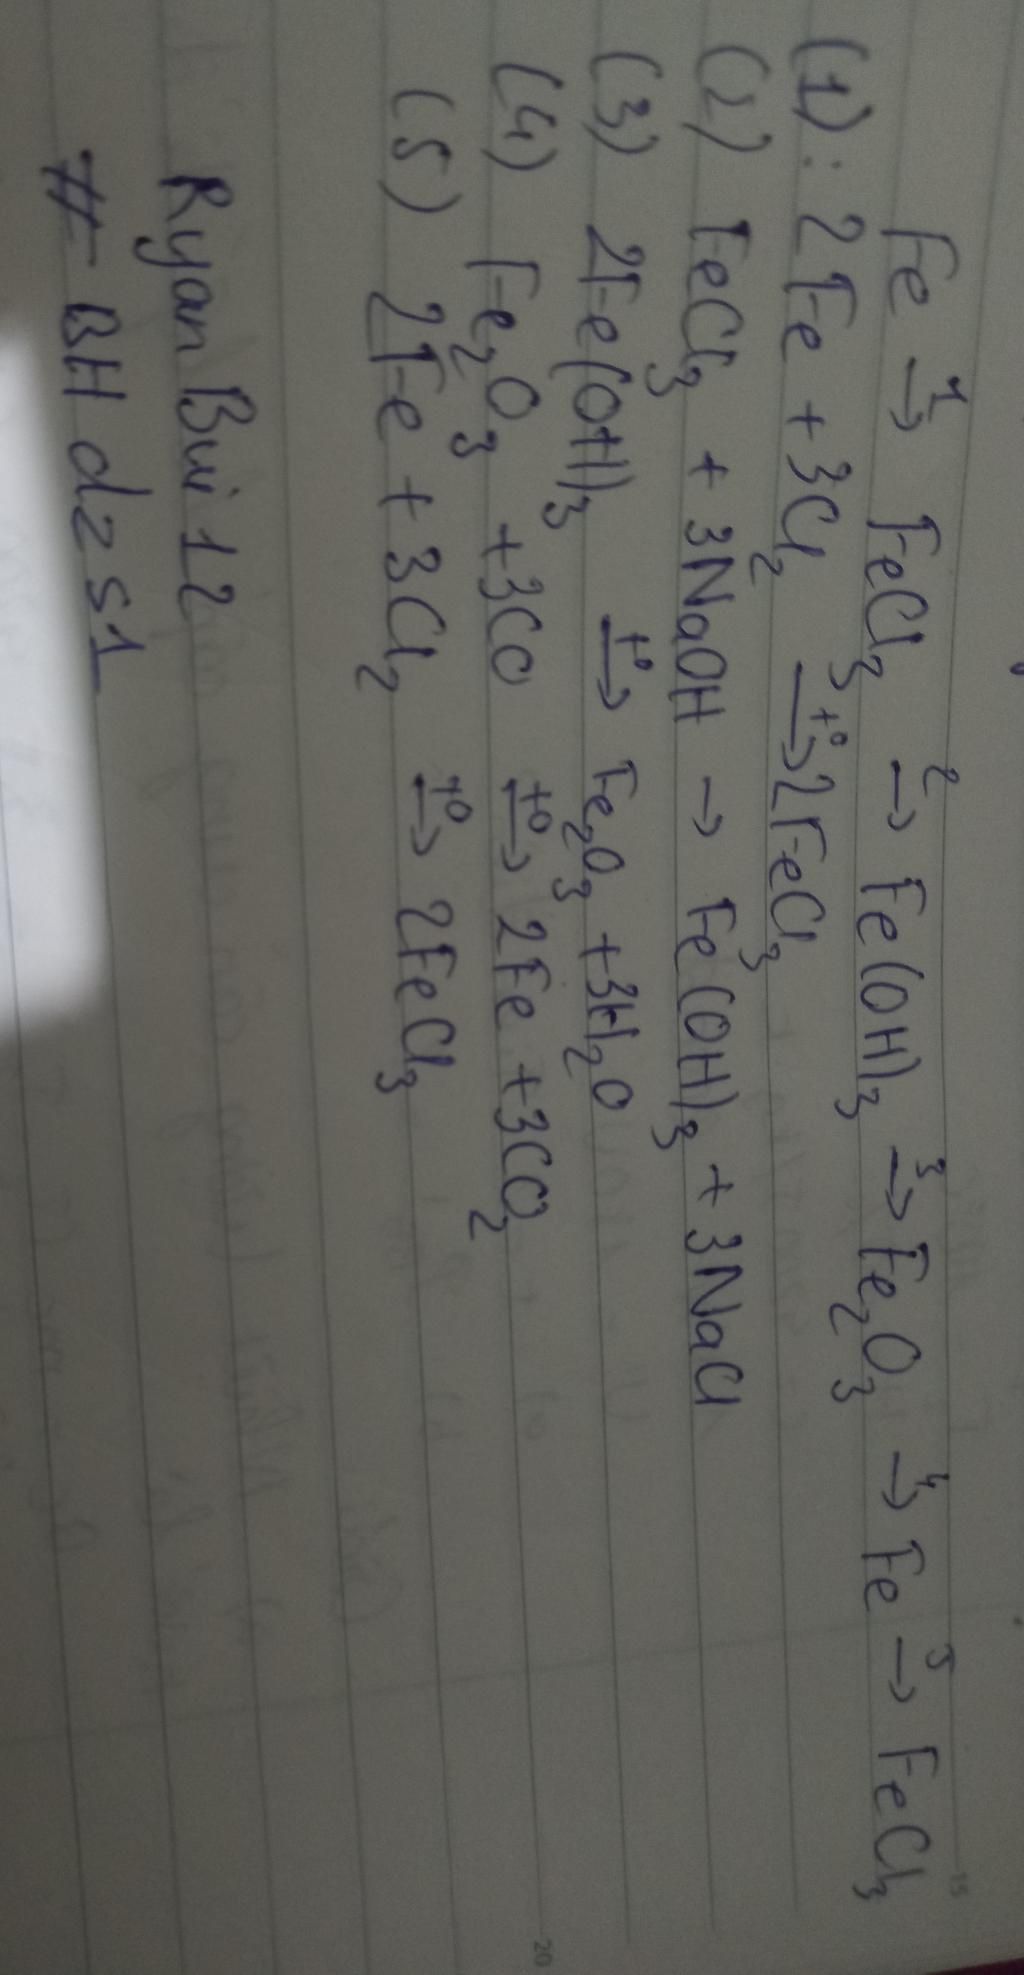 Fe →¹ FeCl₃ →² Fe(OH)₃ →³ Fe₂O₃ →⁴ Fe →⁵ FeCl₃
(1): 2Fe + 3Cl₂ →t° 2FeCl₃
(2) FeCl₃ + 3NaOH → Fe(OH)₃ + 3NaCl
(3) 2Fe(OH)₃ →t° Fe₂O₃ + 3H₂O
(4) Fe₂O₃ + 3CO →t° 2Fe + 3CO₂
(5) 2Fe + 3Cl₂ →t° 2FeCl₃
Ryan Bui 12
# BHdzs1
15
20